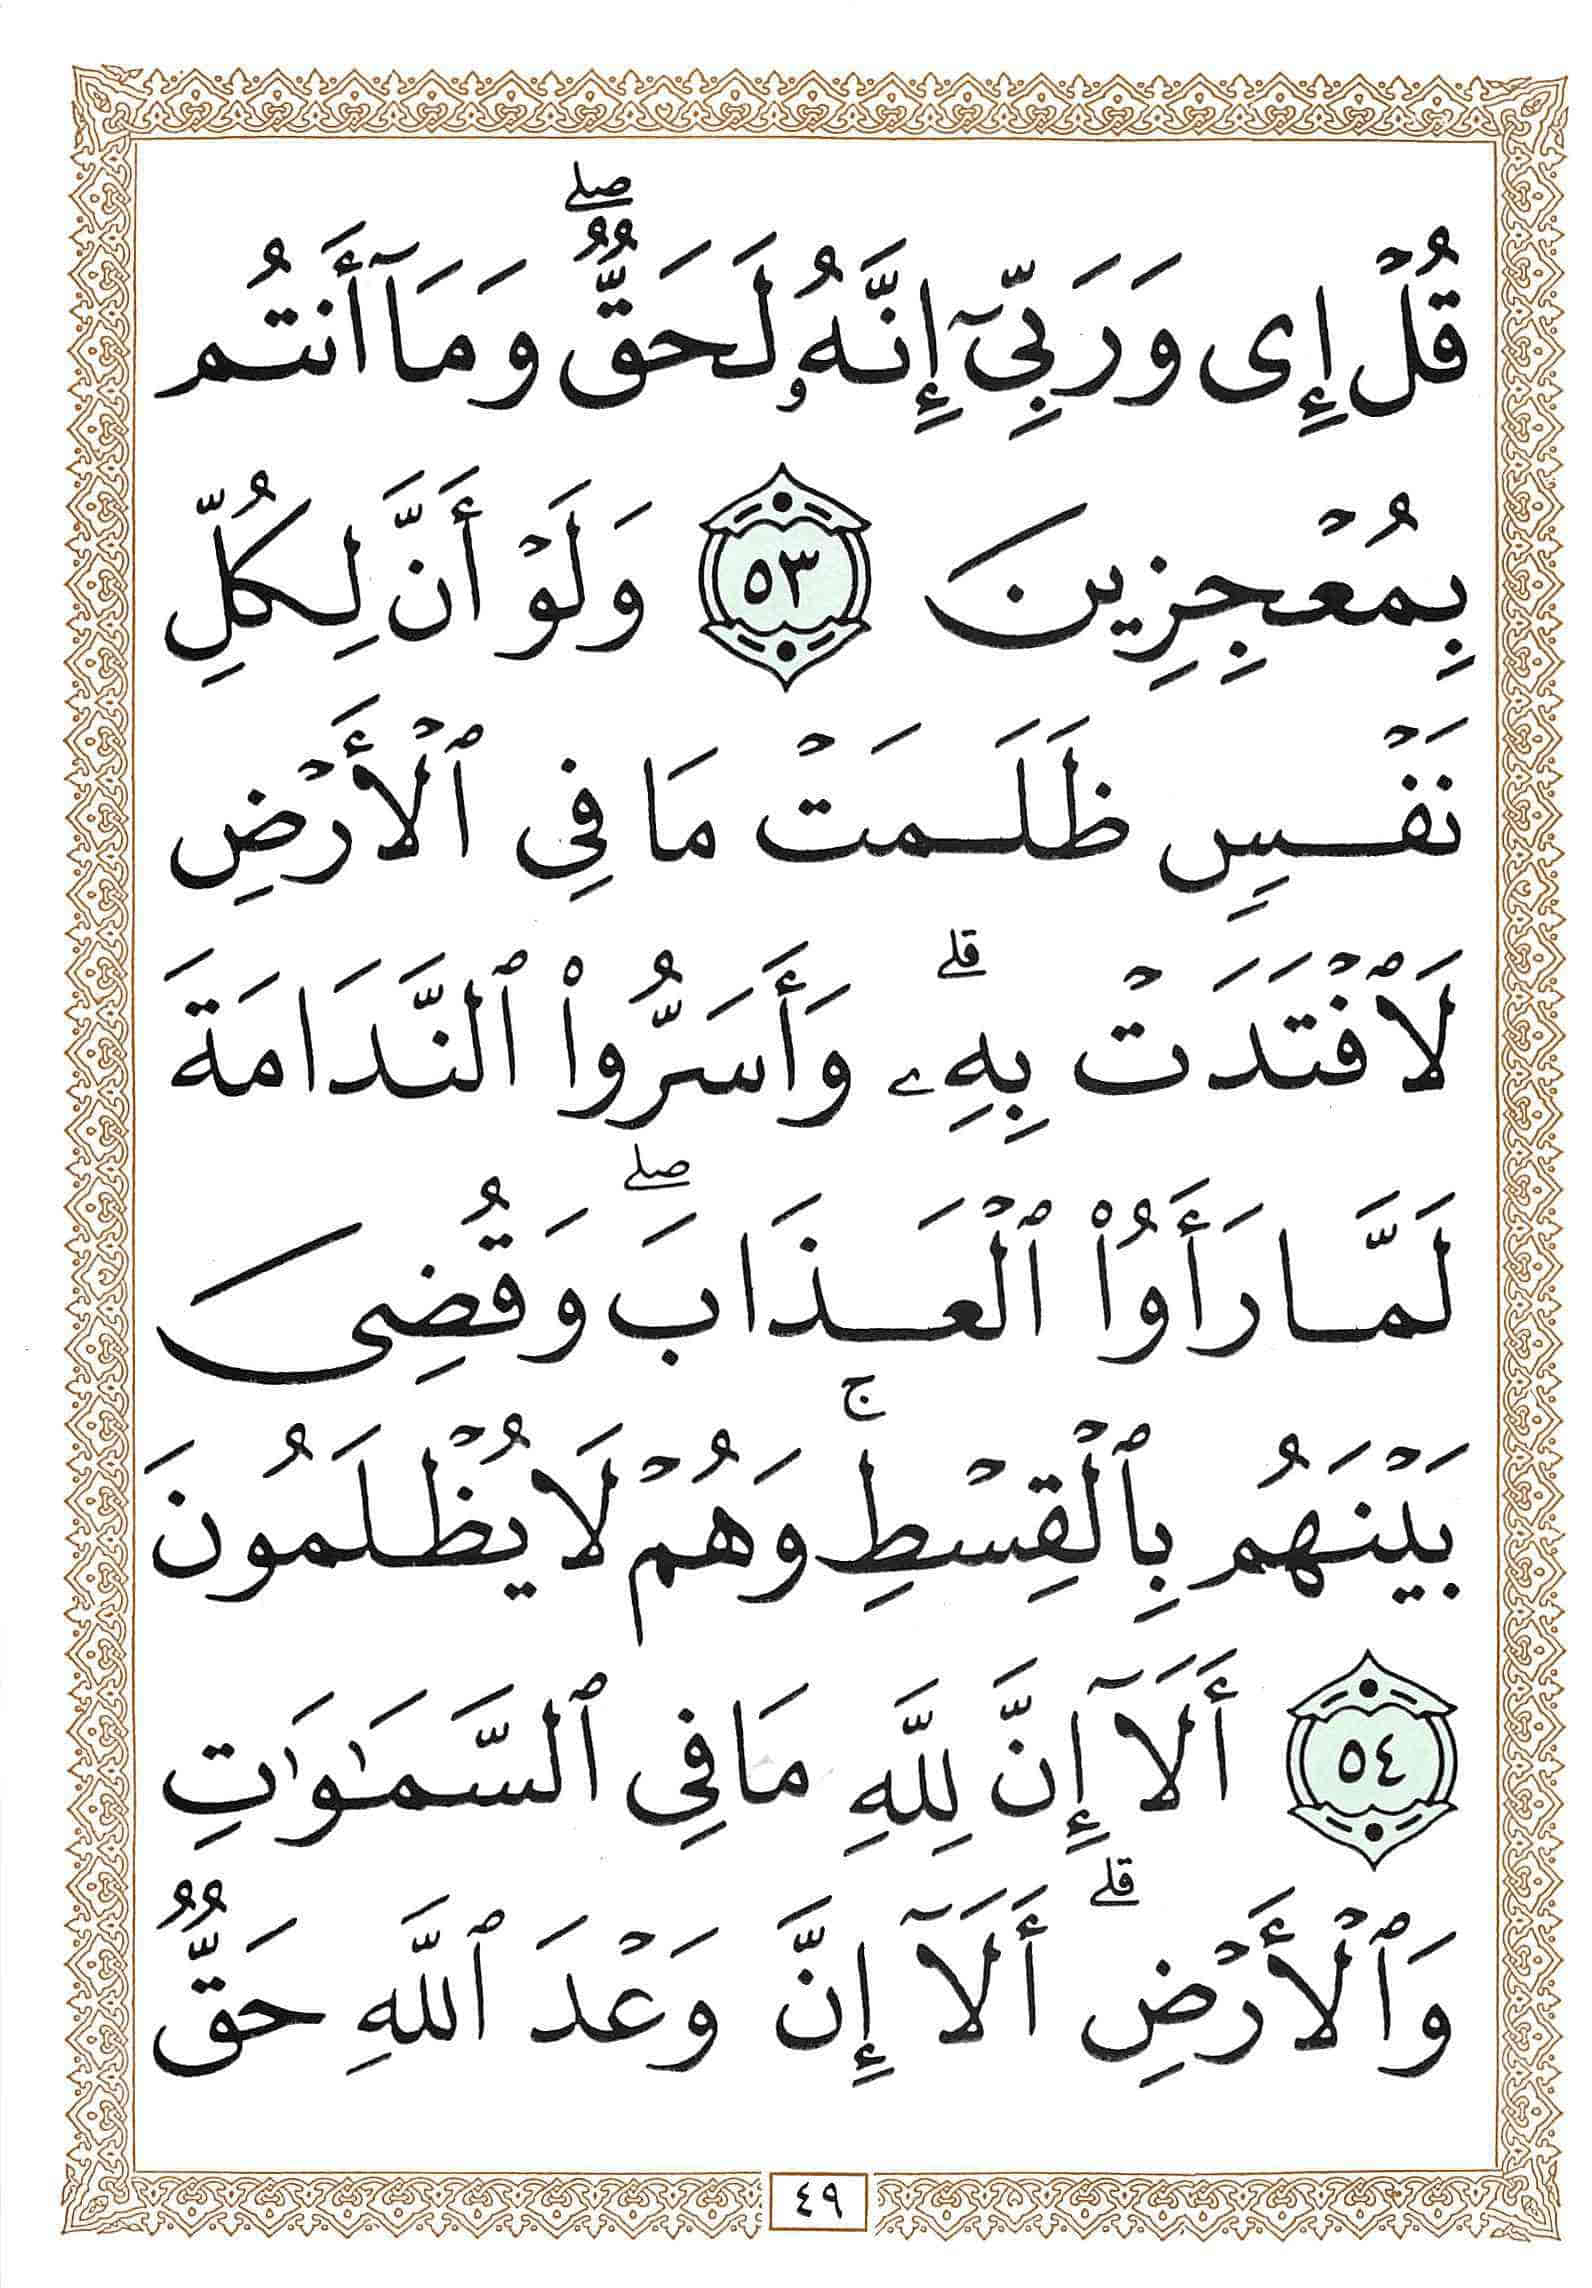 قُلْ إِى وَرَبِّىٓ إِنَّهُۥ لَحَقٌّ ۖ وَمَآ أَنتُم
بِمُعْجِزِينَ ٥٣ وَلَوْ أَنَّ لِكُلِّ
نَفْسٍ ظَلَمَتْ مَا فِى ٱلْأَرْضِ
لَٱفْتَدَتْ بِهِۦ ۗ وَأَسَرُّوا۟ ٱلنَّدَامَةَ
لَمَّا رَأَوُا۟ ٱلْعَذَابَ ۖ وَقُضِىَ
بَيْنَهُم بِٱلْقِسْطِ ۚ وَهُمْ لَا يُظْلَمُونَ
٥٤ أَلَآ إِنَّ لِلَّهِ مَا فِى ٱلسَّمَـٰوَٰتِ
وَٱلْأَرْضِ ۗ أَلَآ إِنَّ وَعْدَ ٱللَّهِ حَقٌّ
٤٩